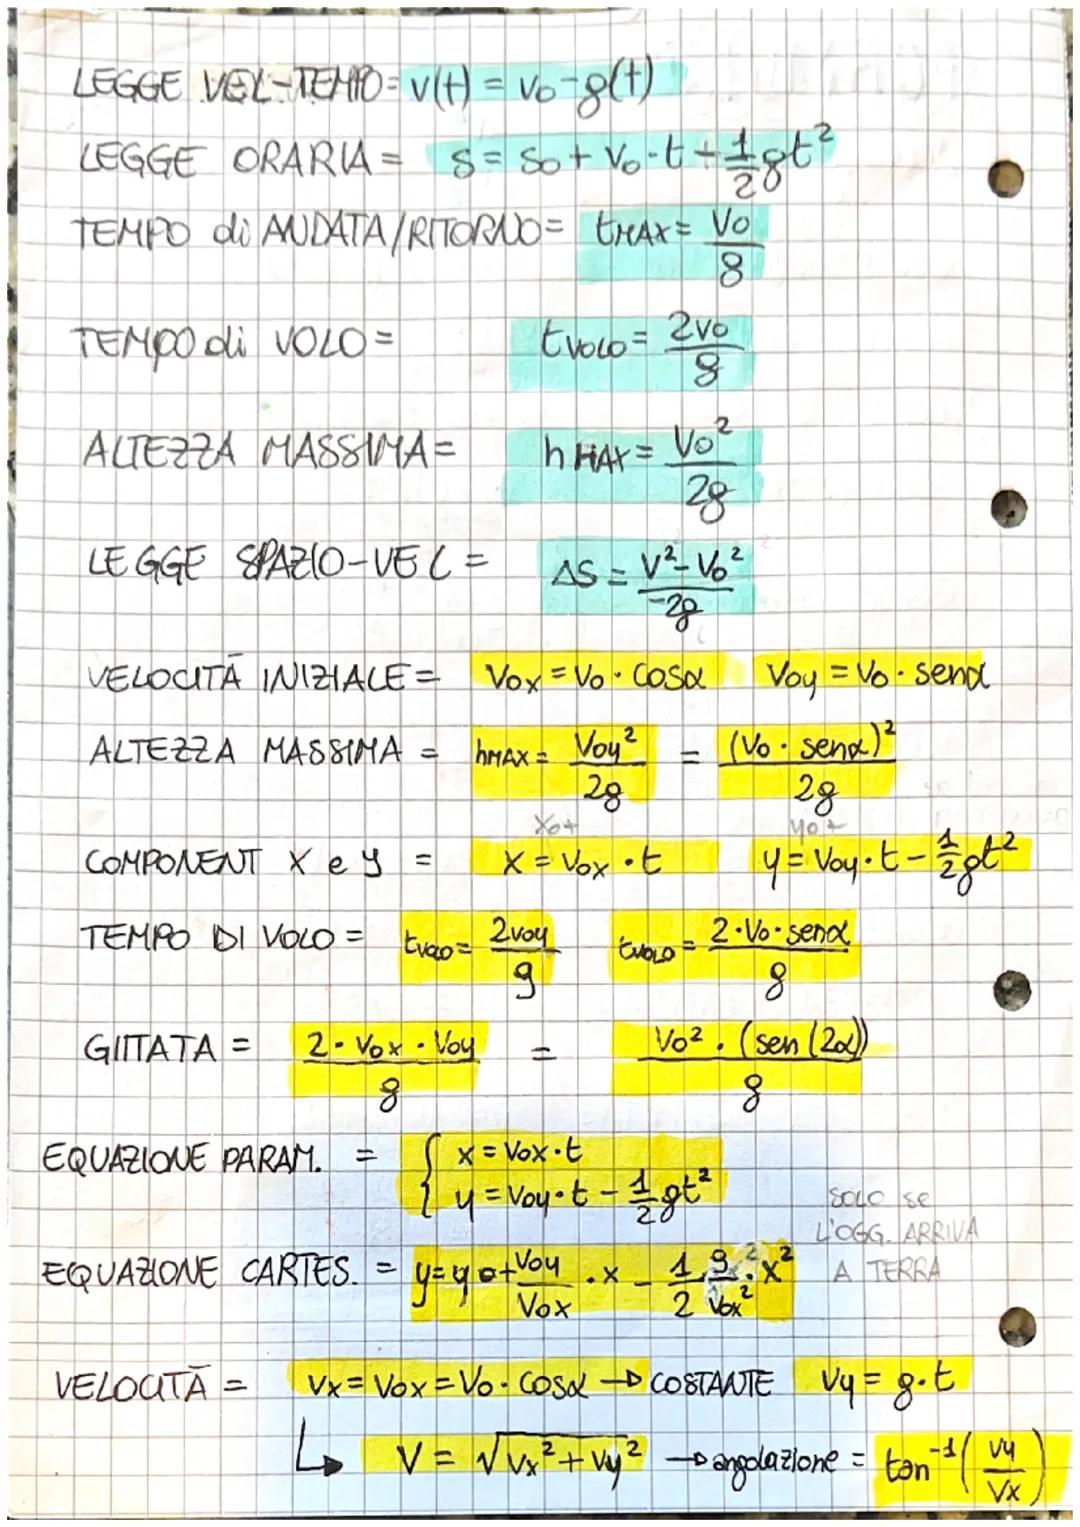 LEGGE VEL-TEMPO = v(t) = v₀ - g(t)
LEGGE ORARIA = s = s₀ + v₀ · t + 1/2 gt²
TEMPO di ANDATA/RITORNO = tMAX = v₀/g
TEMPO di VOLO = tVOLO = 2v₀/g
ALTEZZA MASSIMA = hMAX = v₀²/2g
LEGGE SPAZIO-VEL = ΔS = v² - v₀²/-2g
VELOCITÀ INIZIALE = V₀x = V₀ · cosα V₀y = V₀ · senα
ALTEZZA MASSIMA = hMAX = V₀y²/2g = (V₀ · senα)²/2g
x₀+ y₀+
COMPONENT X e y = x = V₀x · t y = V₀y · t - 1/2 gt²
TEMPO DI VOLO = tVOLO = 2V₀y/g tVOLO = 2 · V₀ · senα/g
GIITATA = 2 · V₀x · V₀y/g = V₀² · (sen(2α))/g
EQUAZIONE PARAM. = { x = V₀x · t
y = V₀y · t - 1/2 gt²
SOLO se
L'OGG. ARRIVA
A TERRA
EQUAZIONE CARTES. = y = y₀ + V₀y/V₀x · x - 1/2 g/V₀x² · x²
VELOCITÀ = Vx = V₀x = V₀ · cosα → COSTANTE Vy = g · t
↳ V = √Vx² + Vy² → angolazione = tan⁻¹(Vy/Vx)